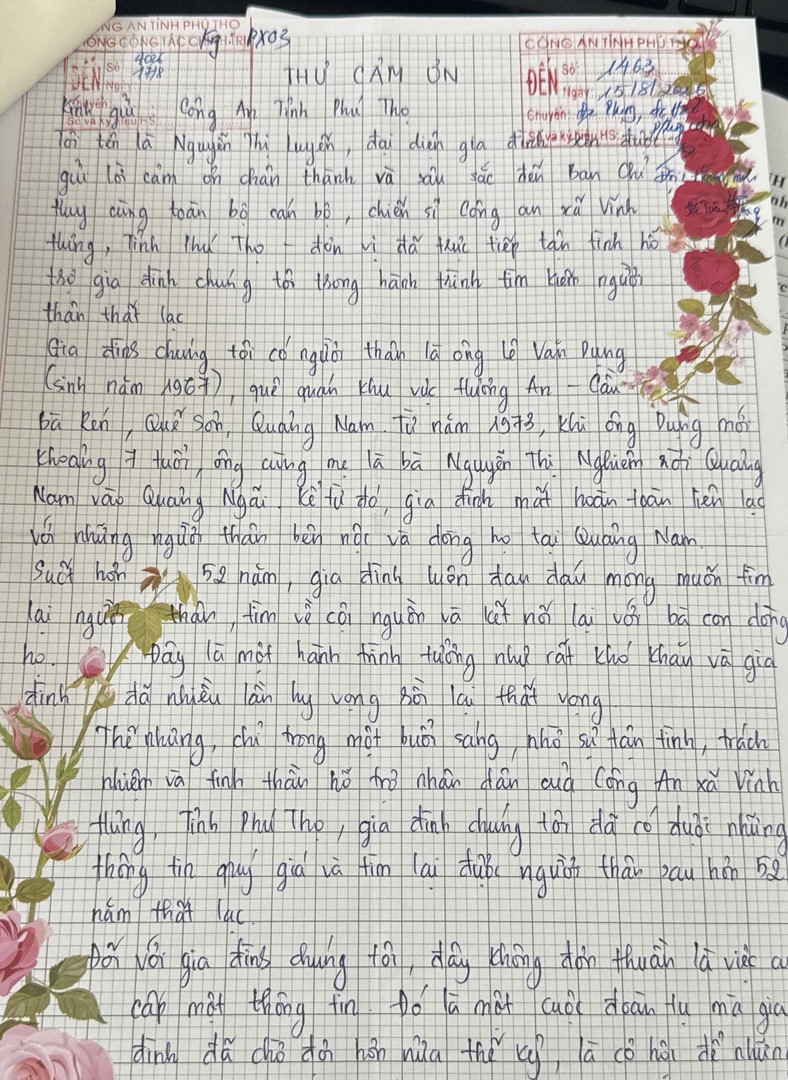 CÔNG AN TỈNH PHÚ THỌ
PHÒNG CÔNG TÁC CHÍNH TRỊ
Kg: PX03
ĐẾN Số
1718
Ngày
Chuyển
Số và ký hiệu HS
CÔNG AN TỈNH PHÚ THỌ
ĐẾN Số: 1463
Ngày: 15/8/2026
Chuyển:
Số và ký hiệu HS:
THƯ CẢM ƠN
Kính gửi: Công An Tỉnh Phú Thọ
Tôi tên là Nguyễn Thị Luyến, đại diện gia đình xin được
gửi lời cảm ơn chân thành và sâu sắc đến Ban Chỉ
Huy cùng toàn bộ cán bộ, chiến sĩ Công an xã Vĩnh
Hưng, Tỉnh Phú Thọ - đơn vị đã trực tiếp tận tình hỗ
trợ gia đình chúng tôi trong hành trình tìm kiếm người
thân thất lạc
Gia đình chúng tôi có người thân là ông Lê Văn Dung
(sinh năm 1967), quê quán khu vực Hương An - Cầu
bà Rén, Quế Sơn, Quảng Nam. Từ năm 1973, khi ông Dung mới
khoảng 7 tuổi, ông cùng mẹ là bà Nguyễn Thị Nghiêm rời Quảng
Nam vào Quảng Ngãi. Kể từ đó, gia đình mất hoàn toàn liên lạc
với những người thân bên nội và dòng họ tại Quảng Nam.
Suốt hơn 52 năm, gia đình luôn đau đáu mong muốn tìm
lại người thân, tìm về cội nguồn và kết nối lại với bà con dòng
họ. Đây là một hành trình tưởng như rất khó khăn và gia
đình đã nhiều lần hy vọng rồi lại thất vọng
Thế nhưng, chỉ trong một buổi sáng, nhờ sự tận tình, trách
nhiệm và tinh thần hỗ trợ nhân dân của Công An xã Vĩnh
Hưng, Tỉnh Phú Thọ, gia đình chúng tôi đã có được những
thông tin quý giá và tìm lại được người thân sau hơn 52
năm thất lạc.
Đối với gia đình chúng tôi, đây không đơn thuần là việc
cấp một thông tin. Đó là một cuộc đoàn tụ mà gia
đình đã chờ đợi hơn nửa thế kỷ, là cơ hội để